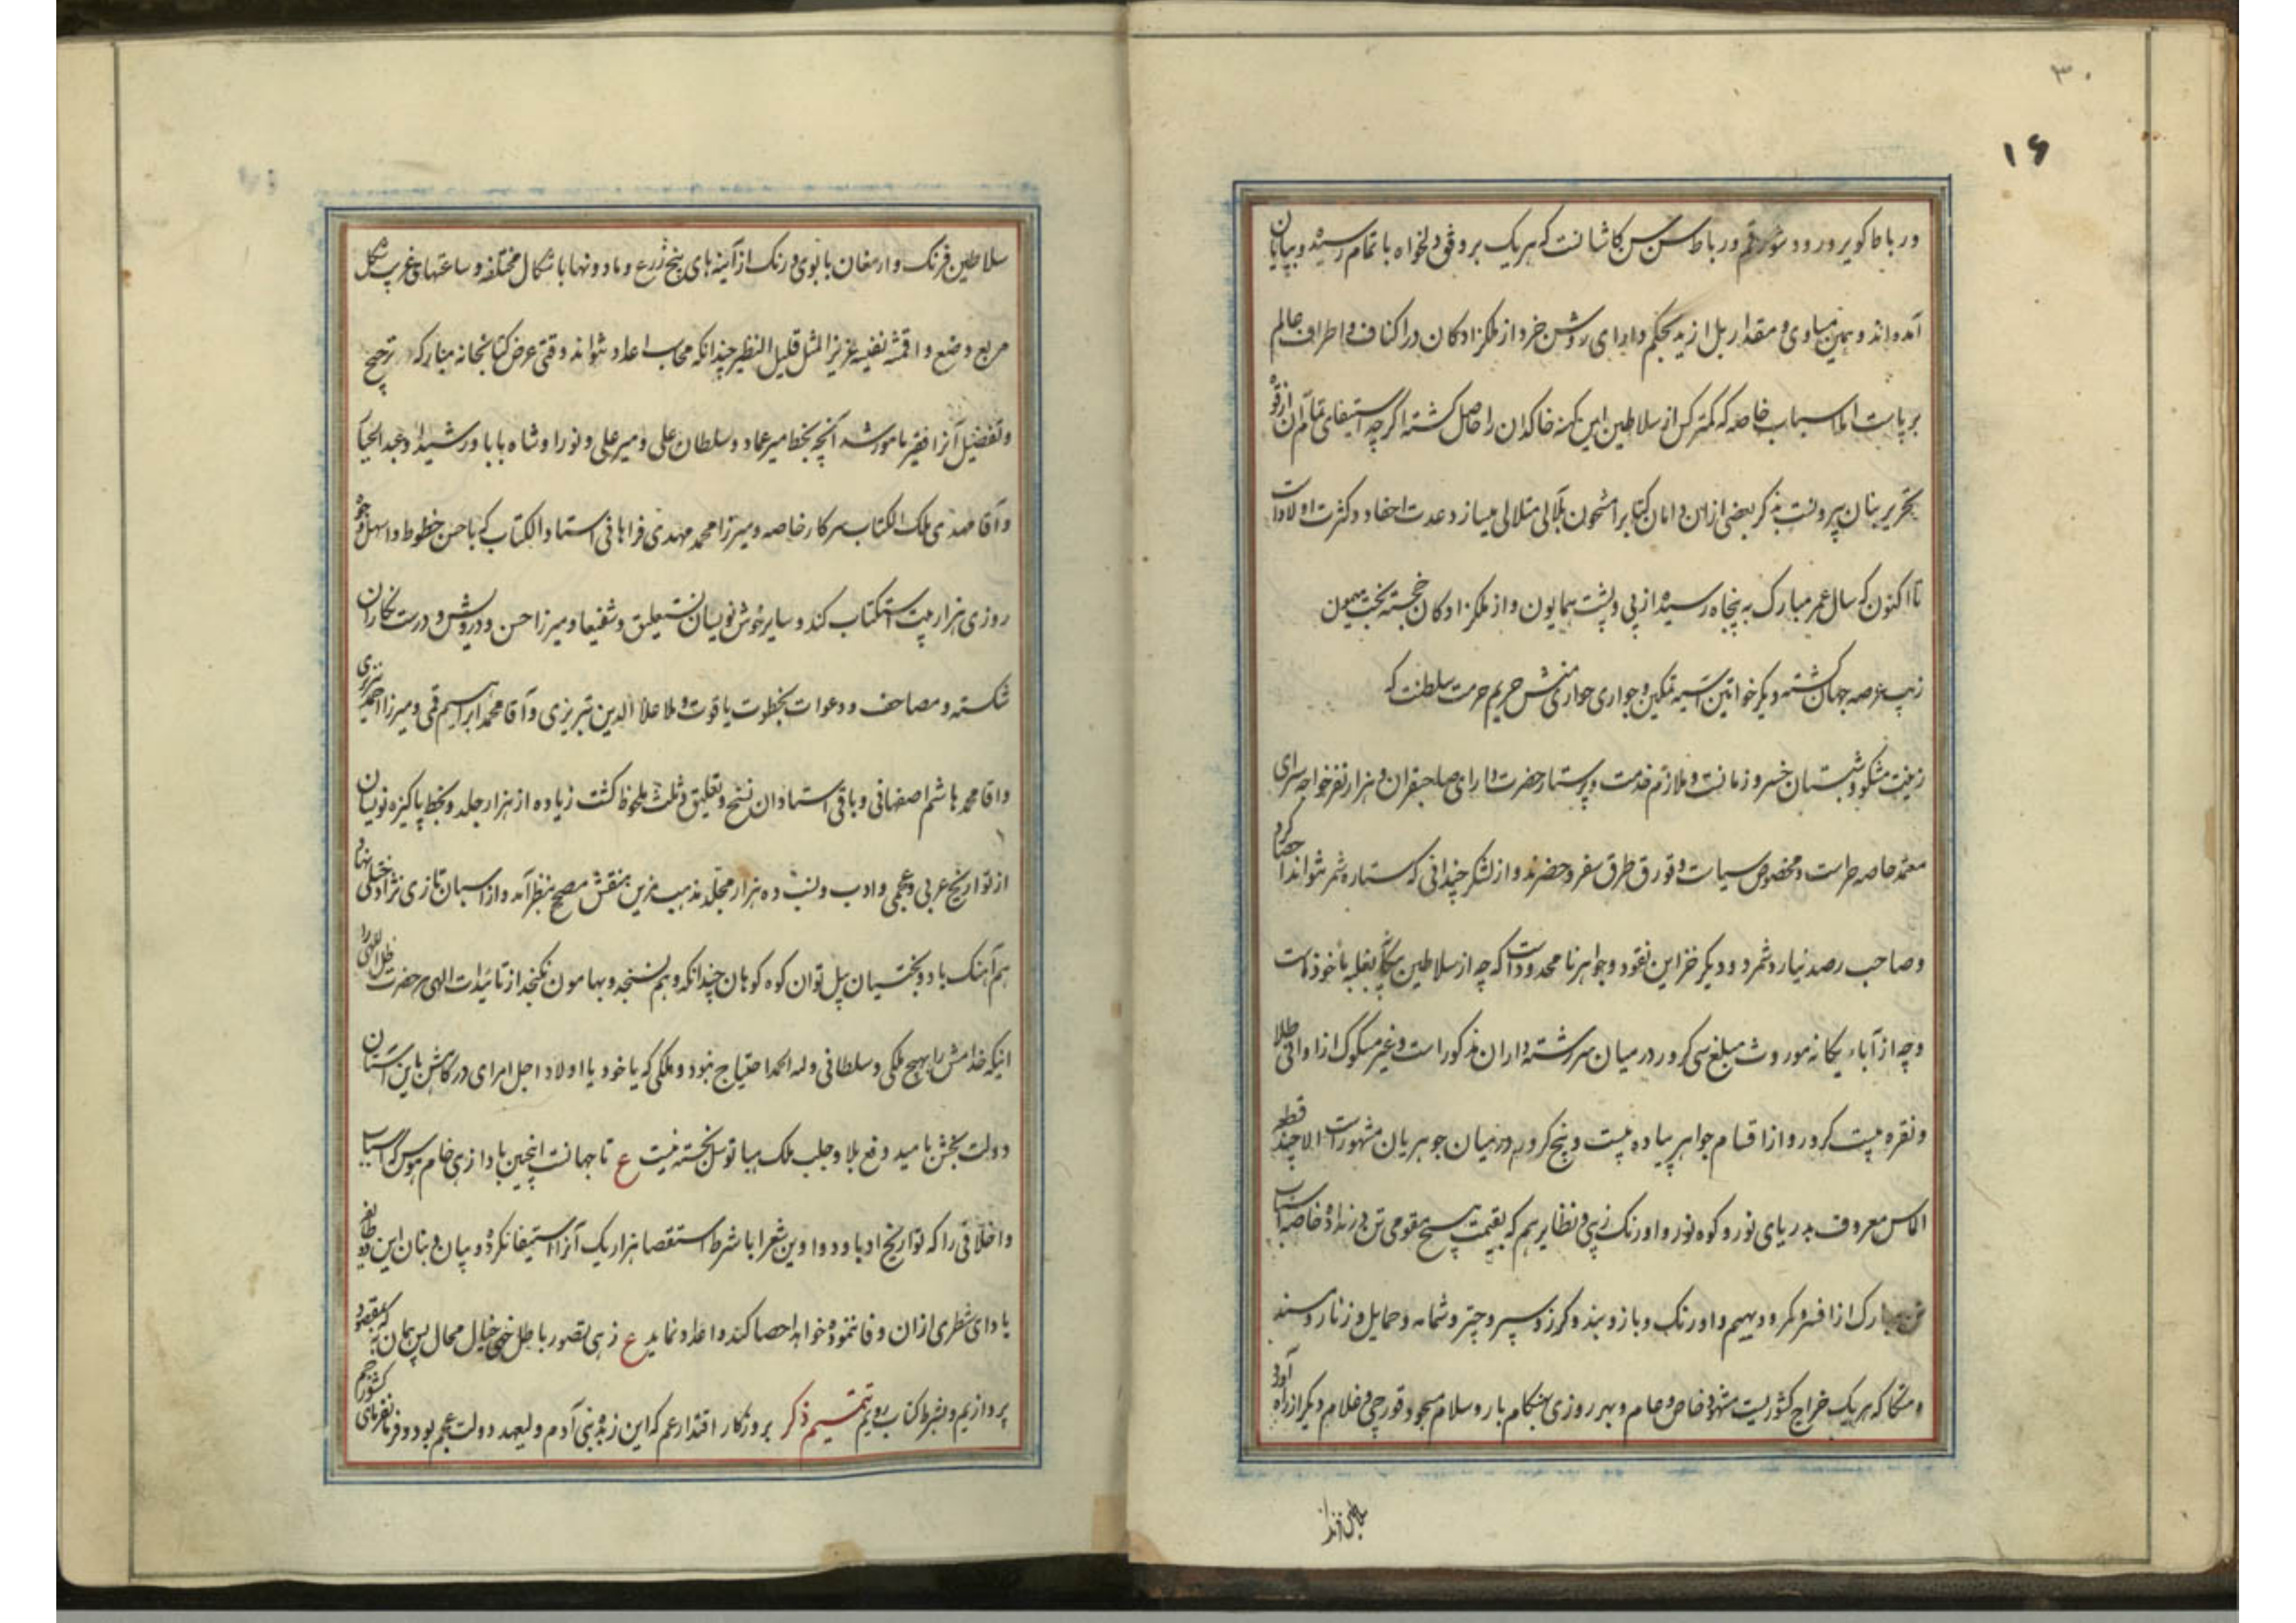 ۳۰
۱۶
و رباط کویر و رود شور قم و رباط سن سن کاشانست که هر یک بر وفق دلخواه با تمام رسیده و بپایان
آمده‌اند و بهمین مساوی و مقدار بل ازید بحکم دارای روشن خرد از ملکزادکان در اکناف و اطراف عالم
بر پاست اما اسباب خاصه که کمتر کس از سلاطین این کهنه خاکدان را حاصل کشته اگر چه استیفای تمام آن از قوه
تحریر بنان بیرونست بذکر بعضی ازان دامان کتاب را مشحون بلآلی متلالی میسازد عدت احفاد و کثرت اولاد
تا اکنون که سال عمر مبارک به پنجاه رسیده از پی و پشت همایون و از ملکزادکان خجسته بخت میمون
زیب عرصه جهان کشته و دیکر خواتین آسیه تمکین و جواری حواری منش حریم حرمت سلطنت که
زینت مشکو و شبستان خسرو زمانست و ملازم خدمت و پرستار حضرت دارای صاحبقران و هزار نفر خواجه سرای
معتمد خاصه حراست و مخصوص سیاست و قورق طرق سفر و حضرند و از لشکر چندانی که ستاره شمر نتواند احصا کرد
و صاحب رصد نیارد شمرد و دیکر خزاین نقود و جواهر نامحدود است که چه از سلاطین بغلبه ماخوذ است
و چه از آباء یکانه موروث مبلغ سی کرور در میان سررشته داران مذکور است و غیر مسکوک از اوانی طلا
و نقره بیست کرور و از اقسام جواهر پیاده بیست و پنج کرور در میان جوهریان مشهور است الا چند قطعه
الماس معروف بدریای نور و کوه نور و اورنک زیبی و نظایر هم که بقیمت هیچ مقومی تن در نداده خاصه اسباب
تن مبارک از افسر و کمر و دیهیم و اورنک و بازوبند و کرز و سپر و چتر و شمامه و حمایل و زنار و مسند
و متکا که هر یک خراج کشوریست مشهود خاص و عام و بهر روزی هنکام بار و سلام مسجود قورچی و غلام و دیکر از راه آورد
سلاطین فرنک و ارمغان بانوی ورنک از آینه های پنج ذرع و مادونها باشکال مختلفه و ساعتهای غریب شکل
مربع وضع و اقمشه نفیسه عزیز المثل قلیل النظیر چندانکه محاسب اعداد نتواند وقتی عرض کتابخانه مبارکه ترجیح
و تفضیل آنرا فقیر مامور شد آنچه بخط میر عماد و سلطان علی و میر علی و نورا و شاه بابا و رشیدا و عبدالجبار
و آقا مهدی ملک الکتاب سرکار خاصه و میرزا محمد مهدی فراهانی استاد الکتاب که باحسن خطوط و اسهل وجوه
روزی هزار بیت استکتاب کند و سایر خوش نویسان نستعلیق و شفیعا و میرزا حسن و درویش و درست نکاران
شکسته و مصاحف و دعوات بخطوت یاقوت و ملا علاء الدین تبریزی و آقا محمد ابراهیم قمی و میرزا احمد نیریزی
و اقا محمد هاشم اصفهانی و باقی استادان نسخ و تعلیق و ثلث ملحوظ کشت زیاده از هزار جلد و بخط پاکیزه نویسان
از تواریخ عربی و عجمی و ادب و نسب ده هزار مجلد مذهب مزین منقش مصحح بنظر آمد و از اسبان تازی نژاد ختلی نهاد
هم آهنک باد و بختیان پیل توان کوه کوهان چندانکه وهم نسنجد و بهامون نکنجد از تائیدات الهی مر حضرت ظل اللهی را
اینکه خدامش را بهیچ ملکی و سلطانی وله الحمد احتیاج نبود و ملکی که یا خود یا اولاد اجل امرای درکاهش باین آستان
دولت بخش بامید دفع بلا و جلب ملک بیا توسل نجسته نیست ع تا جهانست اینچنین بادا زهی خام هوس که آسیب
و اخلاقی را که تواریخ ادبا و دواوین شعرا با شرط استقصا هزار یک آنرا استیفا نکرده و بیان و بنان این
بادای شطری ازان وفا ننموده خواهد احصا کند و اعداد نماید ع زهی تصور باطل خیی خیال محال پس همان به که بمقصود
پردازیم و بشرط کتاب رویم تتمیم ذکر بروزکار اقتدار عم که این زبده بنی آدم ولیعهد دولت عجم بود و فرمانفرمای کشور جم